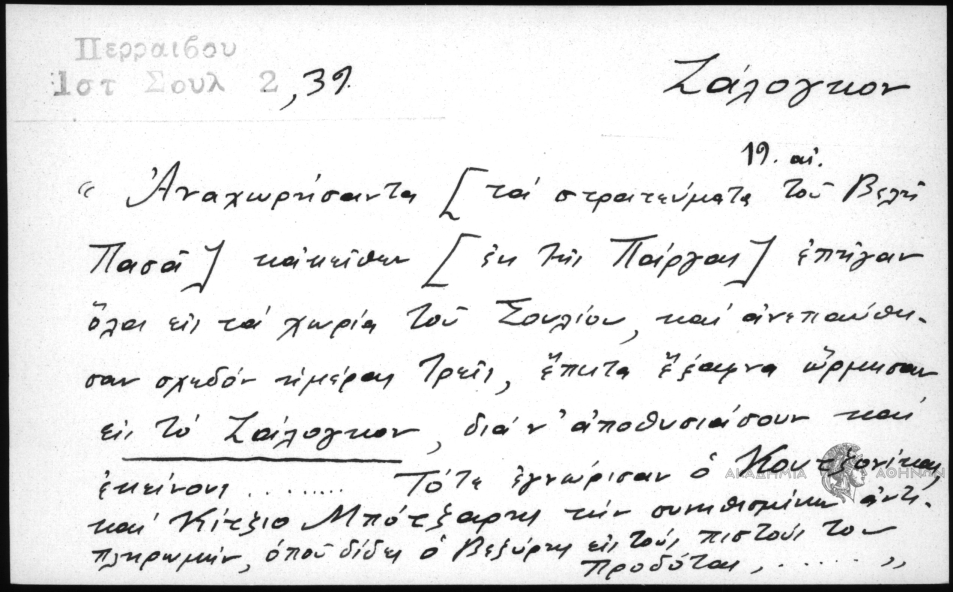 Περραιβου
Ιστ Σουλ 2, 39.
Ζάλογκον
19. αἰ.
“ Ἀναχωρήσαντα [τά στρατεύματα τοῦ Βελῆ
Πασᾶ] κἀκεῖθεν [ἐκ τῆς Πάργας] ἐπῆγαν
ὅλα εἰς τά χωρία τοῦ Σουλίου, καί ἀνεπαύθη-
σαν σχεδόν ἡμέρας τρεῖς, ἔπειτα ἔξαφνα ὥρμησαν
εἰς τό Ζάλογκον, διά ν' ἀποθυσιάσουν καί
ἐκείνους ........ Τότε ἐγνώρισαν ὁ Κουτζονίκας,
καί Κίτζιο Μπότζαρης τήν συνηθισμένην ἀντι-
πληρωμήν, ὁποῦ δίδει ὁ Βεζύρης εἰς τούς πιστούς του
προδότας, ...... ”
ΑΚΑΔΗΜΙΑ ΑΘΗΝΩΝ